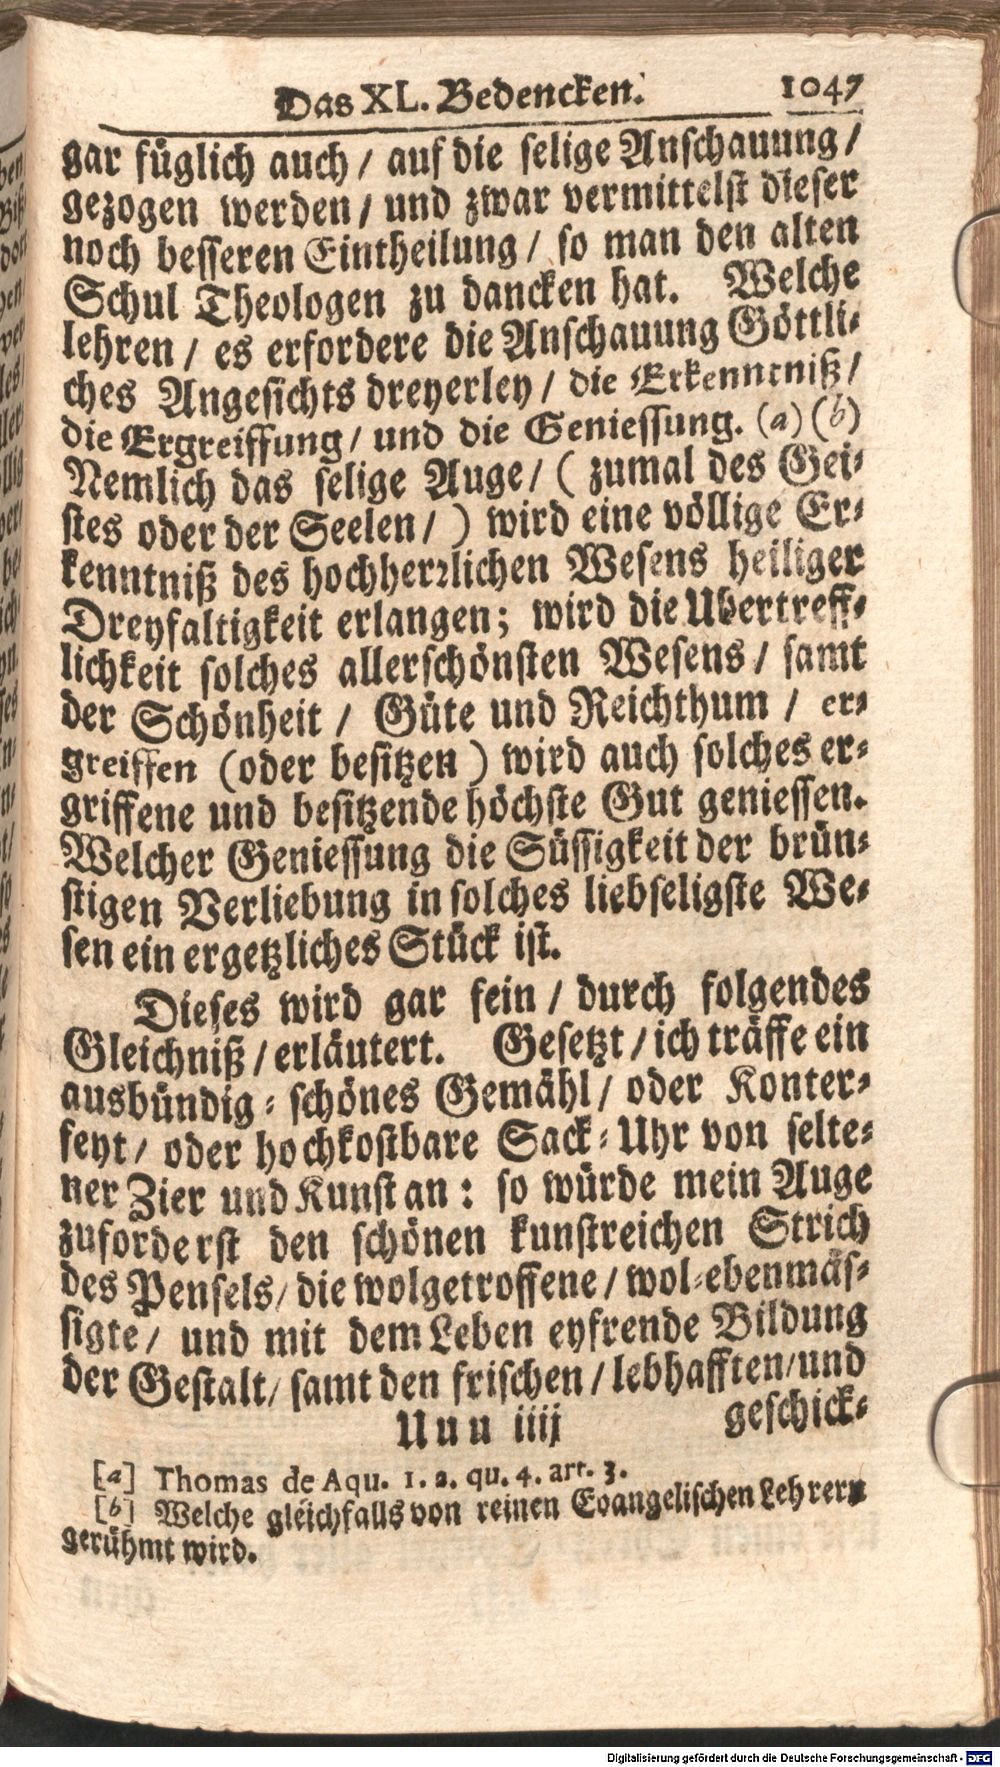 Das XL. Bedencken. 1047
gar füglich auch / auf die selige Anschauung /
gezogen werden / und zwar vermittelst dieser
noch besseren Eintheilung / so man den alten
Schul Theologen zu dancken hat. Welche
lehren / es erfordere die Anschauung Göttli-
ches Angesichts dreyerley / die Erkenntniß /
die Ergreiffung / und die Geniessung. (a) (b)
Nemlich das selige Auge / ( zumal des Gei-
stes oder der Seelen / ) wird eine völlige Er-
kenntniß des hochherrlichen Wesens heiliger
Dreyfaltigkeit erlangen; wird die Ubertreff-
lichkeit solches allerschönsten Wesens / samt
der Schönheit / Güte und Reichthum / er-
greiffen (oder besitzen ) wird auch solches er-
griffene und besitzende höchste Gut geniessen.
Welcher Geniessung die Süssigkeit der brün-
stigen Verliebung in solches liebseligste We-
sen ein ergetzliches Stück ist.
Dieses wird gar fein / durch folgendes
Gleichniß / erläutert. Gesetzt / ich träffe ein
ausbündig-schönes Gemähl / oder Konter-
feyt / oder hochkostbare Sack-Uhr von selte-
ner Zier und Kunst an: so würde mein Auge
zuforderst den schönen kunstreichen Strich
des Pensels / die wolgetroffene / wol-ebenmäs-
sigte / und mit dem Leben eyfrende Bildung
der Gestalt / samt den frischen / lebhafften / und
Uuu iiij geschick-
[a] Thomas de Aqu. 1. 2. qu. 4. art. 3.
[b] Welche gleichfalls von reinen Evangelischen Lehrern
gerühmt wird.
Digitalisierung gefördert durch die Deutsche Forschungsgemeinschaft - DFG